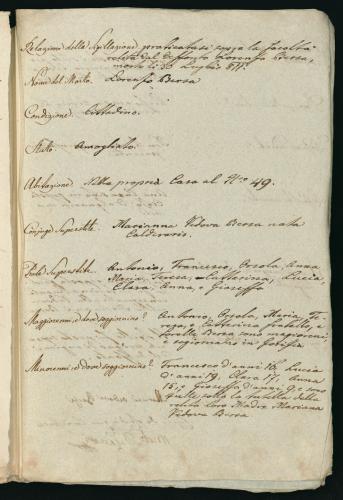 Relazione della Sigillazione praticatasi sopra la facoltà
relita dal defonto Lorenzo Bersa,
morto li 30 Luglio
Nome del Morto. Lorenzo Bersa
Condizione. Cittadino.
Stato. Amogliato.
Abitazione. Nella propria Casa al N.ro 49.
Conjuge Superstite. Marianna Vedova Bersa nata
Calderaris.
Prole Superstite. Antonio, Francesco, Orsola, Anna
Maria, Teresa, Catterina, Lucia,
Clara, Anna, e Gioseffa
Maggiorenni, e dove soggiornino? Antonio, Orsola, Maria, Te-
resa, e Catterina fratello, e
sorelle Bersa sono magiorenni,
e sogiornano in Gorizia
Minorenni, ed dove soggiornino? Francesco d'anni 18, Lucia
d'anni 19, Clara 17, Anna
15, e Gioseffa d'anni 9, e sono
quelle sotto la tutella della
loro Madre Mariana
Vedova Bersa